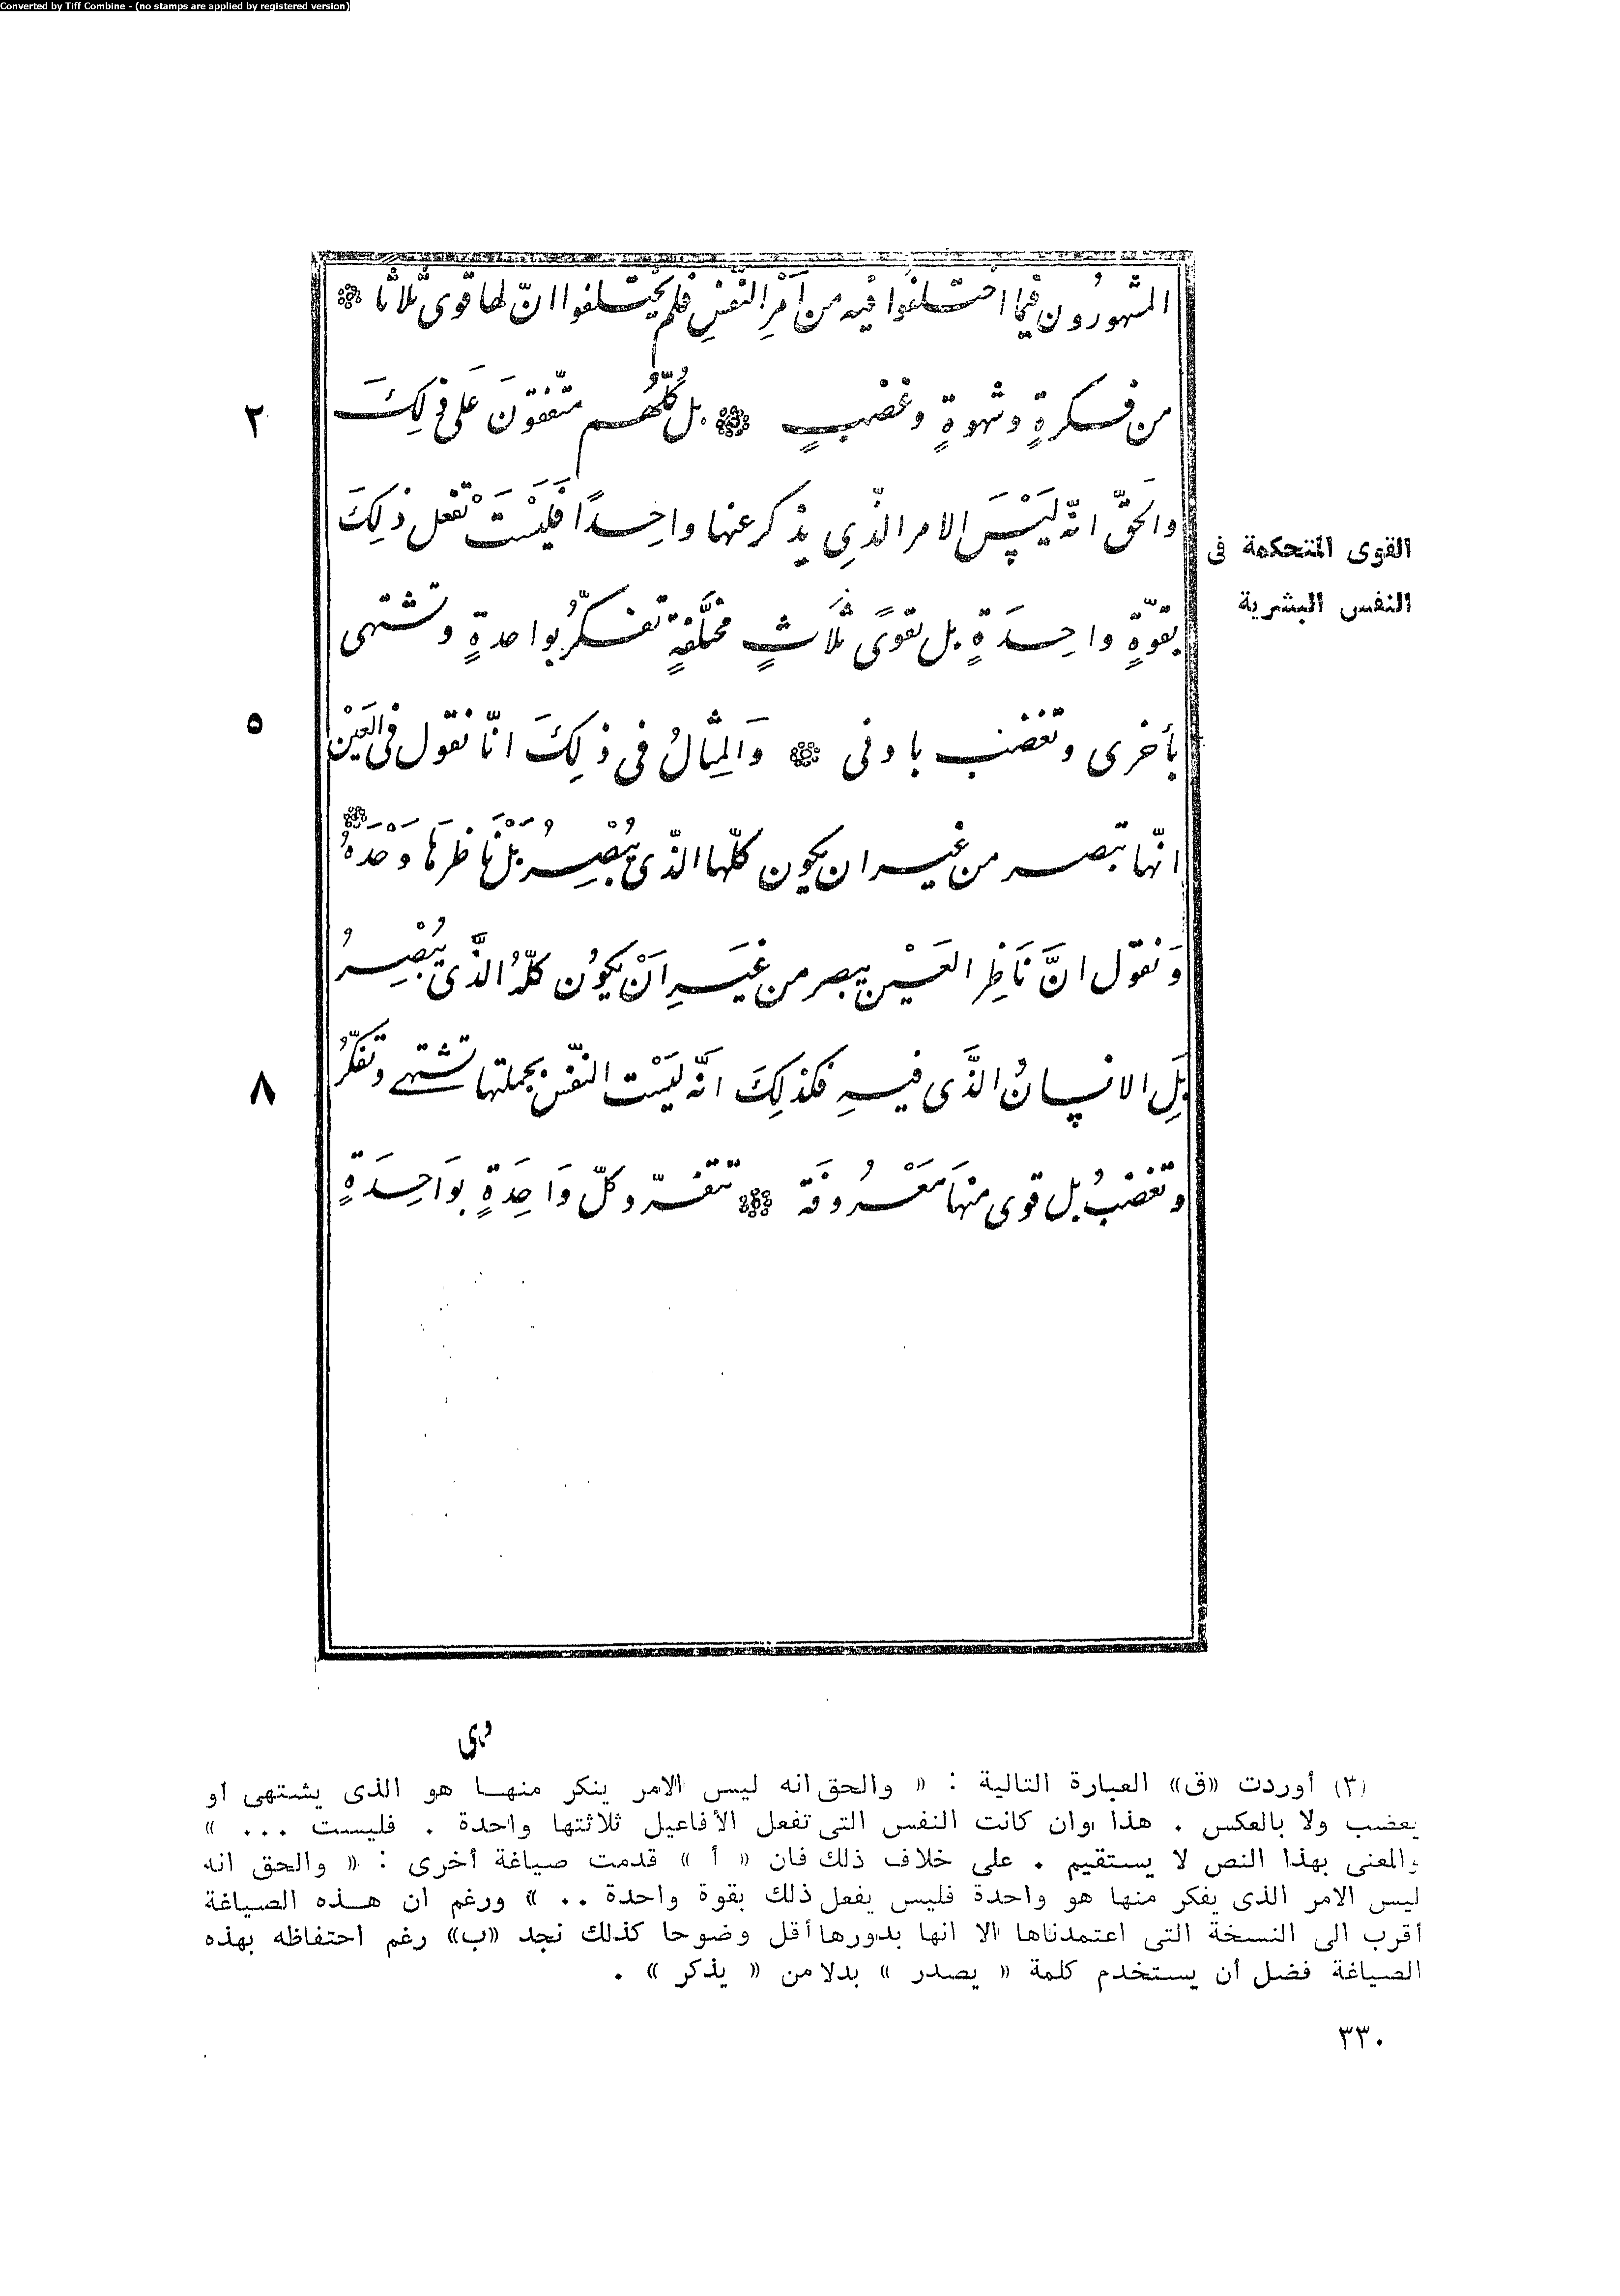 Converted by Tiff Combine - (no stamps are applied by registered version)
المشهورُون فيما اختلفوا فيه من أمْرِ النّفْسِ فلم يختلفوا انّ لها قوىً ثلاثا
٢
من فكرةٍ وشهوةٍ وغضبٍ بل كُلّهُم متّفقونَ عَلى ذلِكَ
وَالحَقّ انّه ليْسَ الامر الّذِي يذكر عنها واحِدًا فَليْسَتْ تفعل ذلِكَ
القوى المتحكمة فى
النفس البشرية
بقوّةٍ واحِدَةٍ بل بقوىً ثلَاثٍ مختَلفةٍ تفكّرُ بواحدةٍ وتشتهى
٥
بأخرى وتغضب باوفى وَالمِثالُ فى ذلِكَ انّا نقول فى العَيْن
انّها تبصر من غير ان يكون كلّها الذّى يُبْصِرُ بَلْ ناظرهَا وَحْدَهُ
وَنقول انَّ نَاظِر العَيْن يبصر من غيَرِ انْ يكوُن كلّهُ الذَّى يُبْصِرُ
٨
بَلِ الانسانُ الذَّى فيهِ فكذلِكَ انَّه ليَسْت النّفْس بجملتها تشتهى وتفكّرُ
وتغضبُ بل قوى منهَا مَعْرُوفَة تتفرّد كلّ وَاحِدَةٍ بوَاحِدَةٍ
وهى
(٣) أوردت «ق» العبارة التالية : « والحق انه ليس الامر ينكر منها هو الذى يشتهى أو
يغضب ولا بالعكس . هذا وان كانت النفس التى تفعل الأفاعيل ثلاثتها واحدة . فليست ... »
والمعنى بهذا النص لا يستقيم . على خلاف ذلك فان « أ » قدمت صياغة أخرى : « والحق انه
ليس الامر الذى يفكر منها هو واحدة فليس يفعل ذلك بقوة واحدة .. » ورغم ان هذه الصياغة
أقرب الى النسخة التى اعتمدناها الا انها بدورها أقل وضوحا كذلك نجد «ب» رغم احتفاظه بهذه
الصياغة فضل أن يستخدم كلمة « يصدر » بدلا من « يذكر » .
٣٣٠